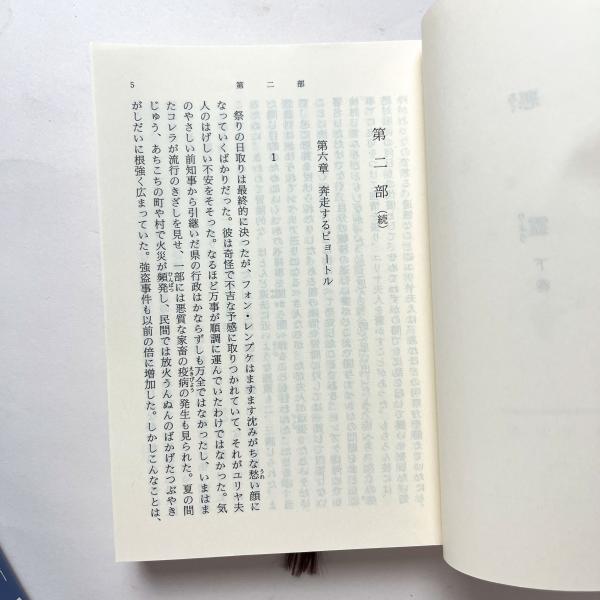 5
第二部
第二部（続）
第六章　奔走するピョートル
1
祭りの日取りは最終的に決ったが、フォン・レンプケはますます沈みがちな愁い顔に
うれ
なっていくばかりだった。彼は奇怪で不吉な予感に取りつかれていて、それがユリヤ夫
人のはげしい不安をそそった。なるほど万事が順調に運んでいたわけではなかった。気
のやさしい前知事から引継いだ県の行政はかならずしも万全ではなかったし、いまはま
たコレラが流行のきざしを見せ、一部には悪質な家畜の疫病の発生も見られた。夏の間
えきびょう
じゅう、あちこちの町や村で火災が頻発し、民間では放火うんぬんのばかげたつぶやき
ひんぱつ
がしだいに根強く広まっていた。強盗事件も以前の倍に増加した。しかしこんなことは、
下巻